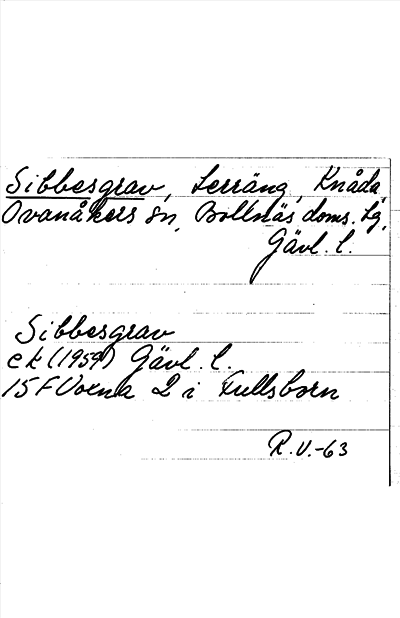 Sibbesgrav, terräng, Knåda
Ovanåkers sn, Bollnäs doms. Lg,
Gävl. l.
Sibbesgrav
ek (1959) Gävl. l.
15F Voxna 2 i Fullsborn
R.V.-63